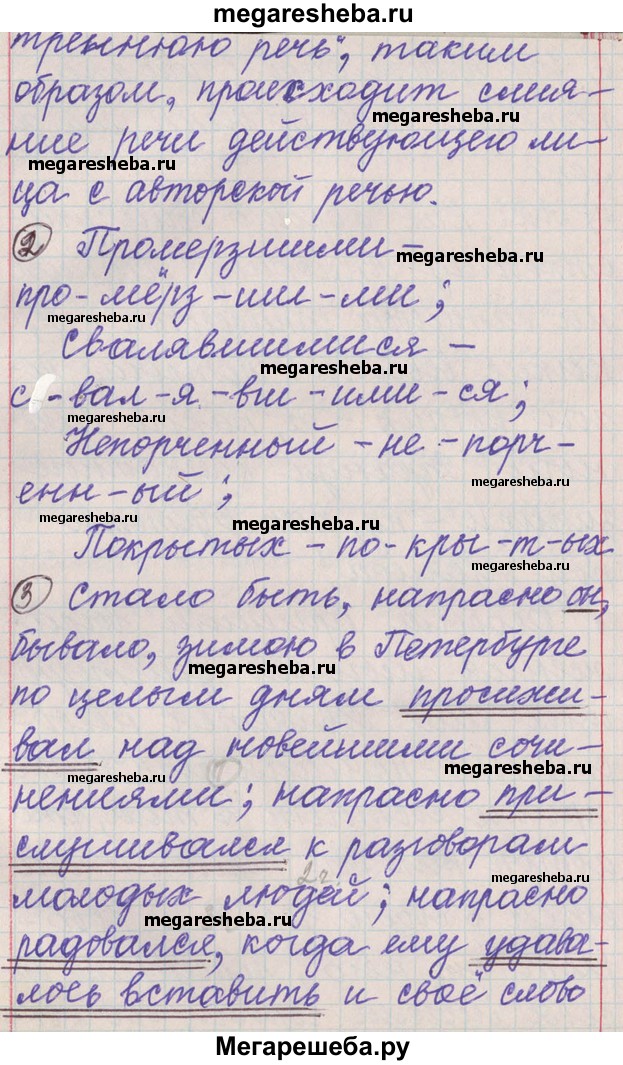 megaresheba.ru
треннюю речь", таким
образом, происходит слия-
ние речи действующего ли-
megaresheba.ru
megaresheba.ru
ца с авторской речью.
2 Промерзшими -
megaresheba.ru
про-мёрз-ши-ми;
megaresheba.ru
Свалявшимися -
megaresheba.ru
с-вал-я-вш-ими-ся;
megaresheba.ru
Непорченный - не - порч-
megaresheba.ru
енн-ый;
megaresheba.ru
megaresheba.ru
Покрытых - по-кры-т-ых
megaresheba.ru
3 Стало быть, напрасно он,
бывало, зимою в Петербурге
megaresheba.ru
по целым дням просижи-
вал над новейшими сочи-
megaresheba.ru
megaresheba.ru
нениями; напрасно при-
слушивался к разговорам
megaresheba.ru
молодых людей; напрасно
megaresheba.ru
радовался, когда ему удава-
лось вставить и своё слово
Мегарешеба.ру